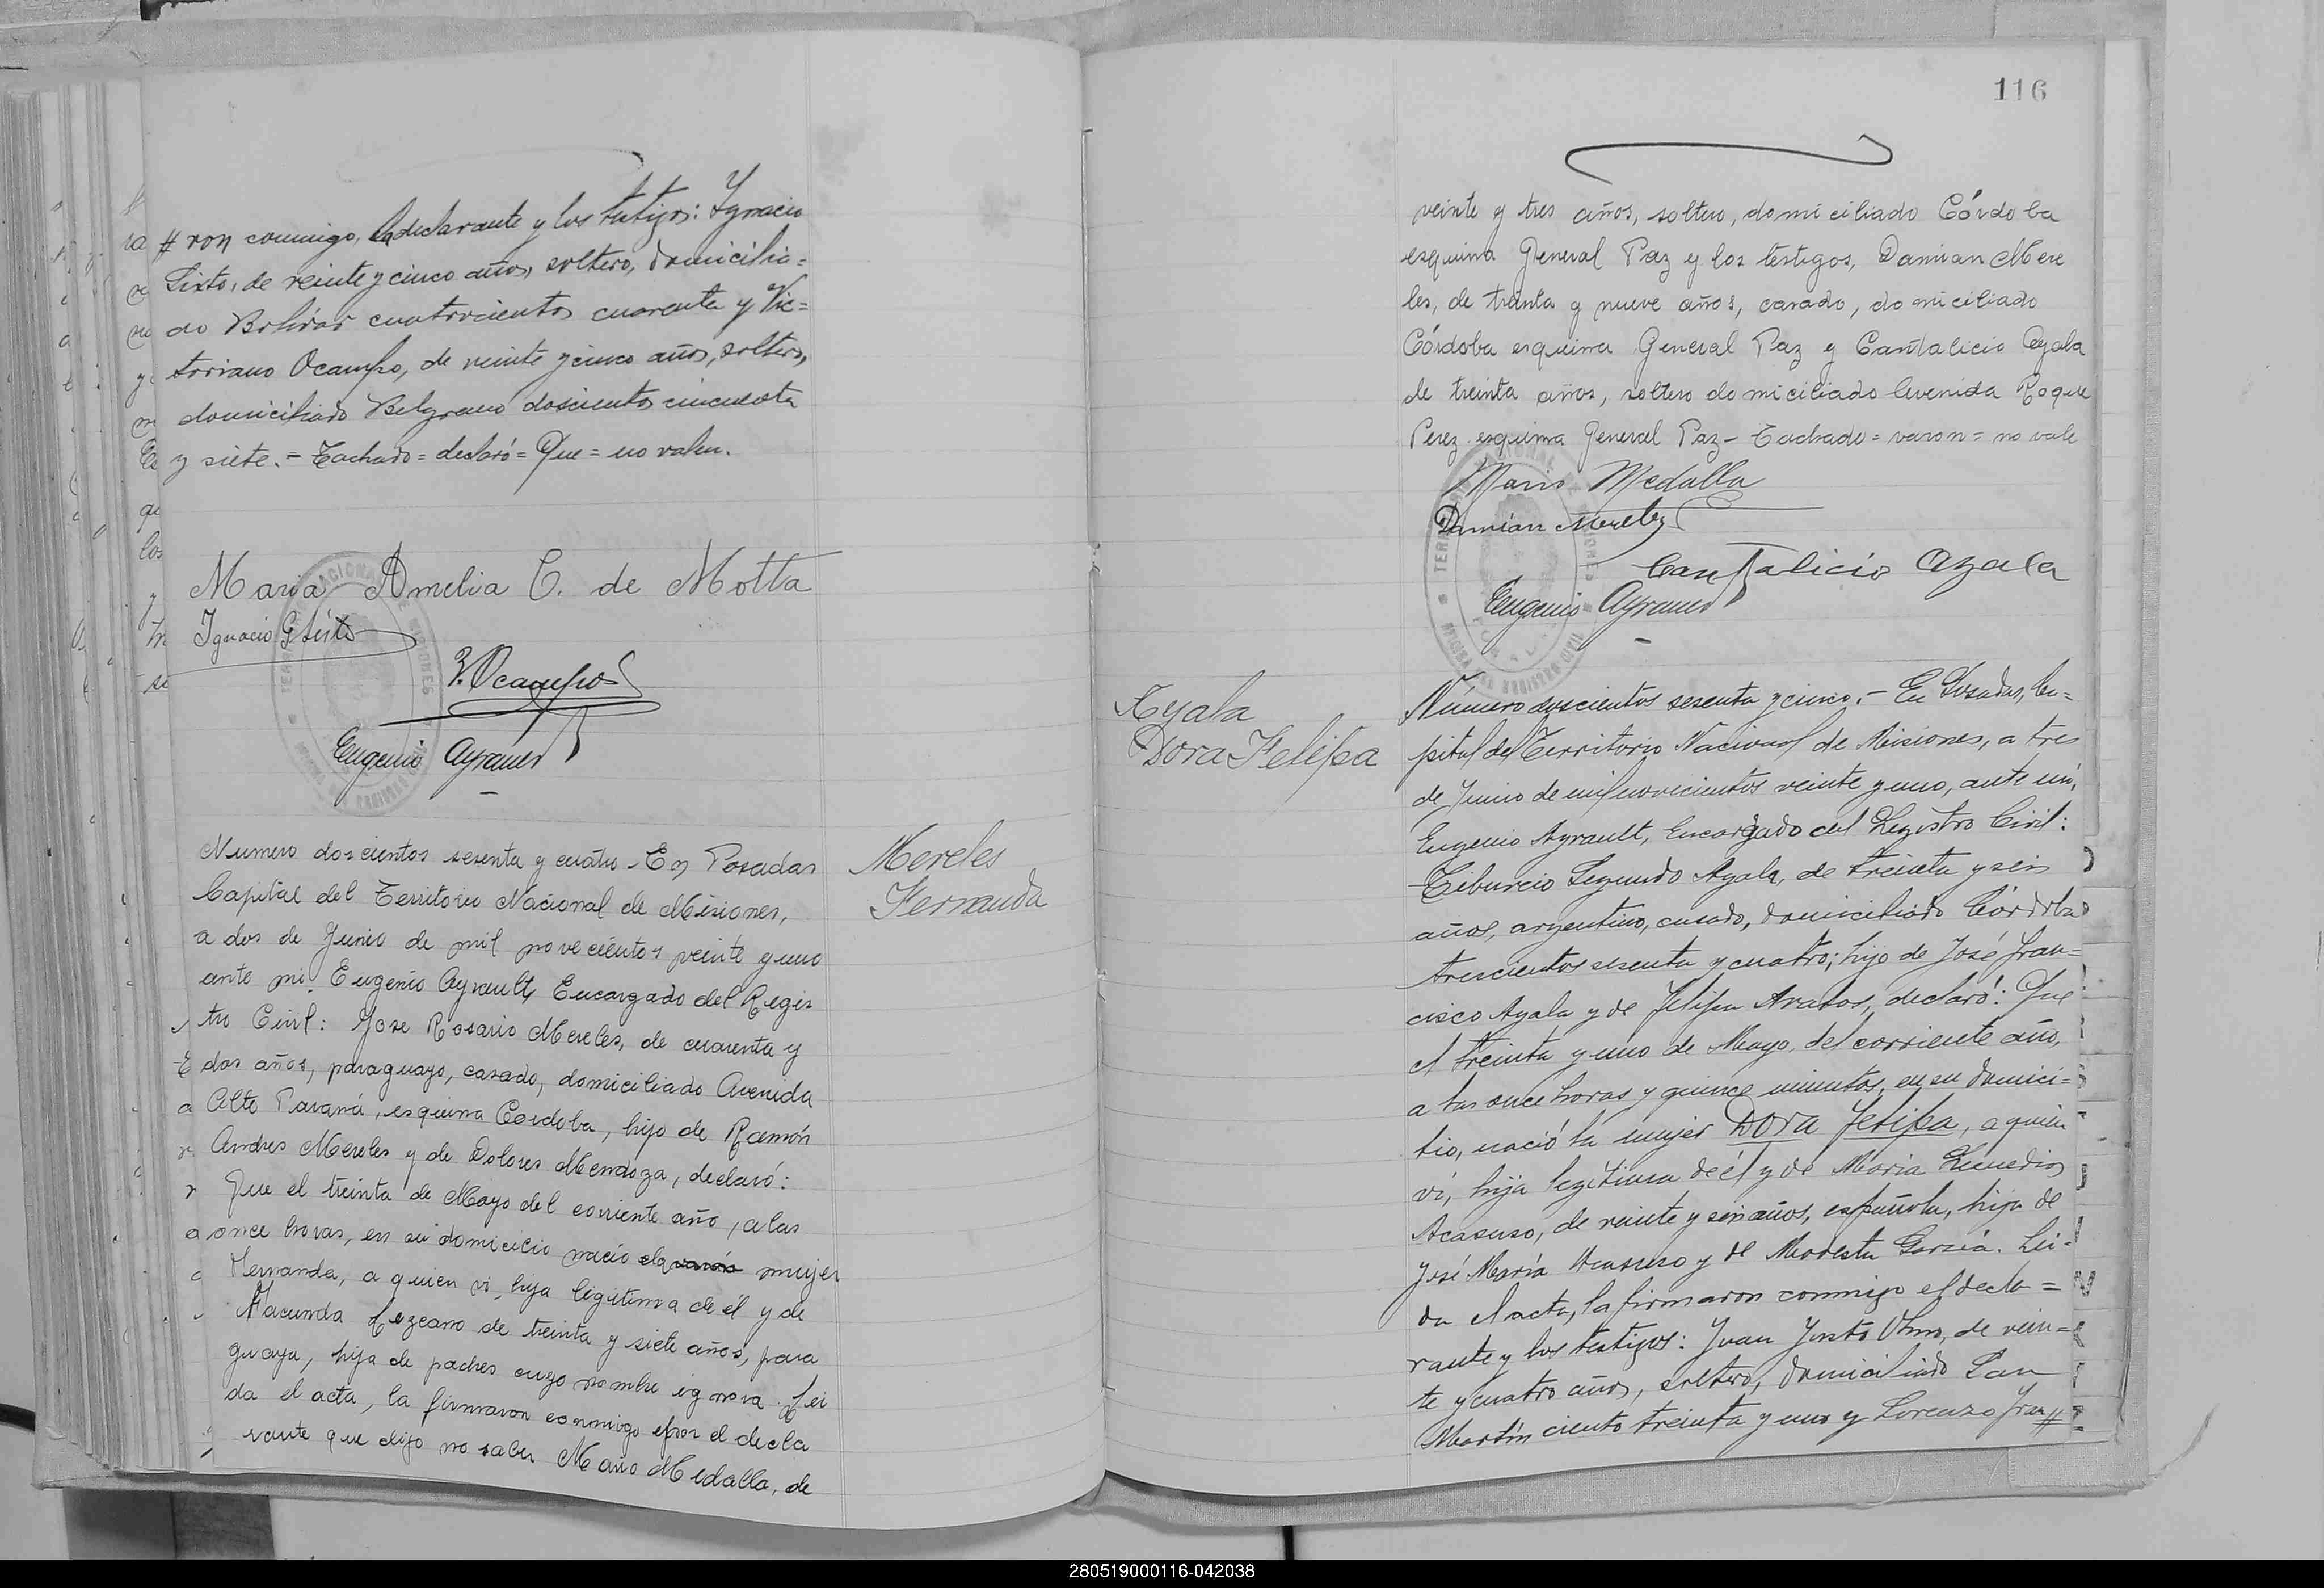 # ron conmigo, la declarante y los testigos: Ygnacio
Sixto, de veinte y cinco años, soltero, domicilia=
do Bolívar cuatrocientos cuarenta y Vic=
toriano Ocampo, de veinte y cinco años, soltero,
domiciliado Belgrano doscientos cincuenta
y siete.- Tachado= declaró= Que= no valen.
Maria Amelia C. de Motta
Ignacio G Sixto
V. Ocampo
Eugenio Ayrault
Numero doscientos sesenta y cuatro - En Posadas
Capital del Territorio Nacional de Misiones,
a dos de Junio de mil novecientos veinte y uno
ante mi Eugenio Ayrault, Encargado del Regis
tro Civil: Jose Rosario Mereles, de cuarenta y
dos años, paraguayo, casado, domiciliado Avenida
Alto Paraná, esquina Cordoba, hijo de Ramón
Andres Mereles y de Dolores Mendoza, declaró:
Que el treinta de Mayo del corriente año, a las
once horas, en su domicilio nació el varón mujer
Fernanda, a quien vi, hija legitima de él y de
Facunda Lezcano de treinta y siete años, para
guaya, hija de padres cuyo nombre ignora. Lei
da el acta, la firmaron conmigo por el decla
rante que dijo no saber Mario Medalla, de
Mereles
Fernanda
116
veinte y tres años, soltero, domiciliado Córdoba
esquina General Paz y los testigos, Damian Mere
les, de treinta y nueve años, casado, domiciliado
Córdoba esquina General Paz y Cantalicio Ayala
de treinta años, soltero domiciliado Avenida Roque
Perez esquina General Paz- Tachado= varon= no vale
Mario Medalla
Damián Mereles
Cantalicio Ayala
Eugenio Ayrault
Ayala
Dora Felipa
Número doscientos sesenta y cinco.- En Posadas, Ca=
pital del Territorio Nacional de Misiones, a tres
de Junio de mil novecientos veinte y uno, ante mí,
Eugenio Ayrault, Encargado del Registro Civil:
Tiburcio Segundo Ayala, de treinta y seis
años, argentino, casado, domiciliado Córdoba
trescientos sesenta y cuatro; hijo de José Fran=
cisco Ayala y de Felipa Avalos, declaró: Que
el treinta y uno de Mayo, del corriente año,
a las once horas y quince minutos, en su domici=
lio, nació la mujer Dora Felipa, a quien
vi, hija legítima de él y de María Remedios
Acasuso, de veinte y seis años, española, hija de
José María Acasuso y de Modesta García. Lei=
da el acta, la firmaron conmigo el decla=
rante y los testigos: Juan Justo Olmo, de vein=
te y cuatro años, soltero, domiciliado San
Martín ciento treinta y uno y Lorenzo Fran#
280519000116-042038